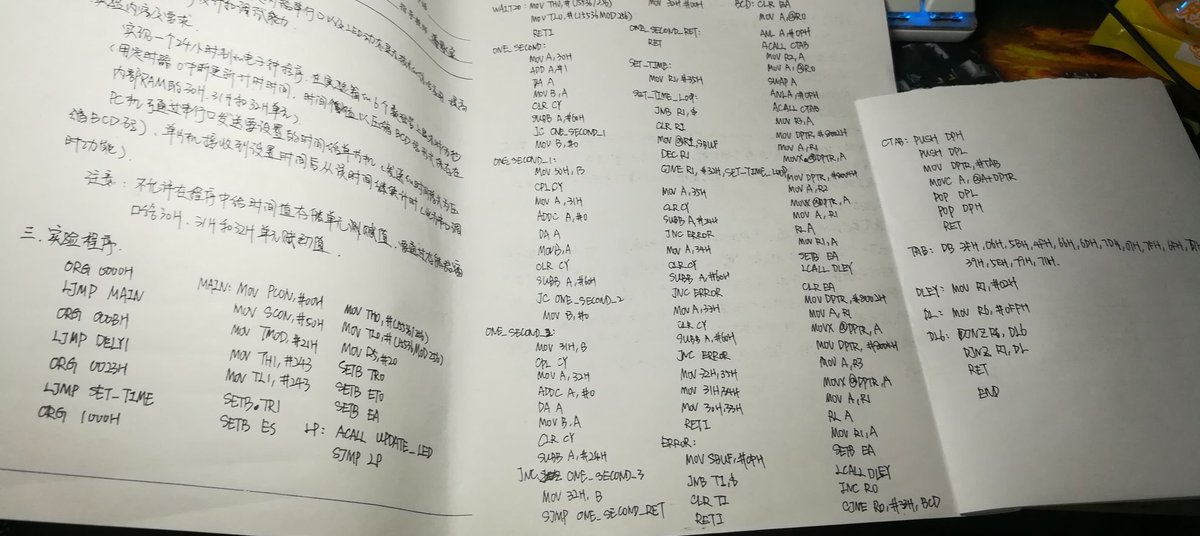 实验内容及要求
实现一个24小时制的电子钟程序,在实验箱的6个数码管上显示时分秒
(用定时器0中断更新计时时间,时间值以压缩BCD码形式保存在
内部RAM的30H、31H和32H单元)
PC机可通过串行口发送要设置的时间给单片机(发送的时间格式为压
缩BCD码),单片机接收到设置时间后从该时间继续计时(时钟调
时功能).
注意:不允许在程序中给时间值存储单元赋值
口给30H、31H和32H单元赋初值.
三.实验程序.
ORG 0000H
LJMP MAIN
ORG 000BH
LJMP DELY1
ORG 0023H
LJMP SET_TIME
ORG 1000H
MAIN: MOV PCON,#00H
MOV SCON,#50H
MOV TMOD,#21H
MOV TH1,#243
MOV TL1,#243
SETB TR1
SETB ES
MOV TH0,#(15536/256)
MOV TL0,#(15536MOD256)
MOV R5,#20
SETB TR0
SETB ET0
SETB EA
LP: ACALL UPDATE_LED
SJMP LP
WAIT20: MOV TH0,#(15536/256)
MOV TL0,#(15536MOD256)
RETI
ONE_SECOND:
MOV A,30H
ADD A,#1
DA A
MOV B,A
CLR CY
SUBB A,#60H
JC ONE_SECOND_1
MOV B,#0
ONE_SECOND_1:
MOV 30H,B
CPL CY
MOV A,31H
ADDC A,#0
DA A
MOV B,A
CLR CY
SUBB A,#60H
JC ONE_SECOND_2
MOV B,#0
ONE_SECOND_2:
MOV 31H,B
CPL CY
MOV A,32H
ADDC A,#0
DA A
MOV B,A
CLR CY
SUBB A,#24H
JNC ONE_SECOND_3
MOV 32H,B
SJMP ONE_SECOND_RET
MOV 30H,#00H
ONE_SECOND_RET:
RET
SET_TIME:
MOV R1,#35H
SET_TIME_LOP:
JNB RI,$
CLR RI
MOV @R1,SBUF
DEC R1
CJNE R1,#32H,SET_TIME_LOP
MOV A,35H
CLR CY
SUBB A,#24H
JNC ERROR
MOV A,34H
CLR CY
SUBB A,#60H
JNC ERROR
MOV A,33H
CLR CY
SUBB A,#60H
JNC ERROR
MOV 32H,35H
MOV 31H,34H
MOV 30H,33H
RETI
ERROR:
MOV SBUF,#0FH
JNB TI,$
CLR TI
RETI
BCD: CLR EA
MOV A,@R0
ANL A,#0FH
ACALL CTAB
MOV R2,A
MOV A,@R0
SWAP A
ANL A,#0FH
ACALL CTAB
MOV R3,A
MOV DPTR,#8002H
MOV A,R1
MOVX @DPTR,A
MOV DPTR,#8004H
MOV A,R2
MOVX @DPTR,A
MOV A,R1
RL A
MOV R1,A
SETB EA
LCALL DLEY
CLR EA
MOV DPTR,#8002H
MOV A,R1
MOVX @DPTR,A
MOV DPTR,#8004H
MOV A,R3
MOVX @DPTR,A
MOV A,R1
RL A
MOV R1,A
SETB EA
LCALL DLEY
INC R0
CJNE R0,#33H,BCD
CTAB: PUSH DPH
PUSH DPL
MOV DPTR,#TAB
MOVC A,@A+DPTR
POP DPL
POP DPH
RET
TAB: DB 3FH,06H,5BH,4FH,66H,6DH,7DH,07H,7FH,6FH,
39H,5EH,79H,71H.
DLEY: MOV R7,#02H
DL: MOV R6,#0FFH
DL6: DJNZ R6,DL6
DJNZ R7,DL
RET
END